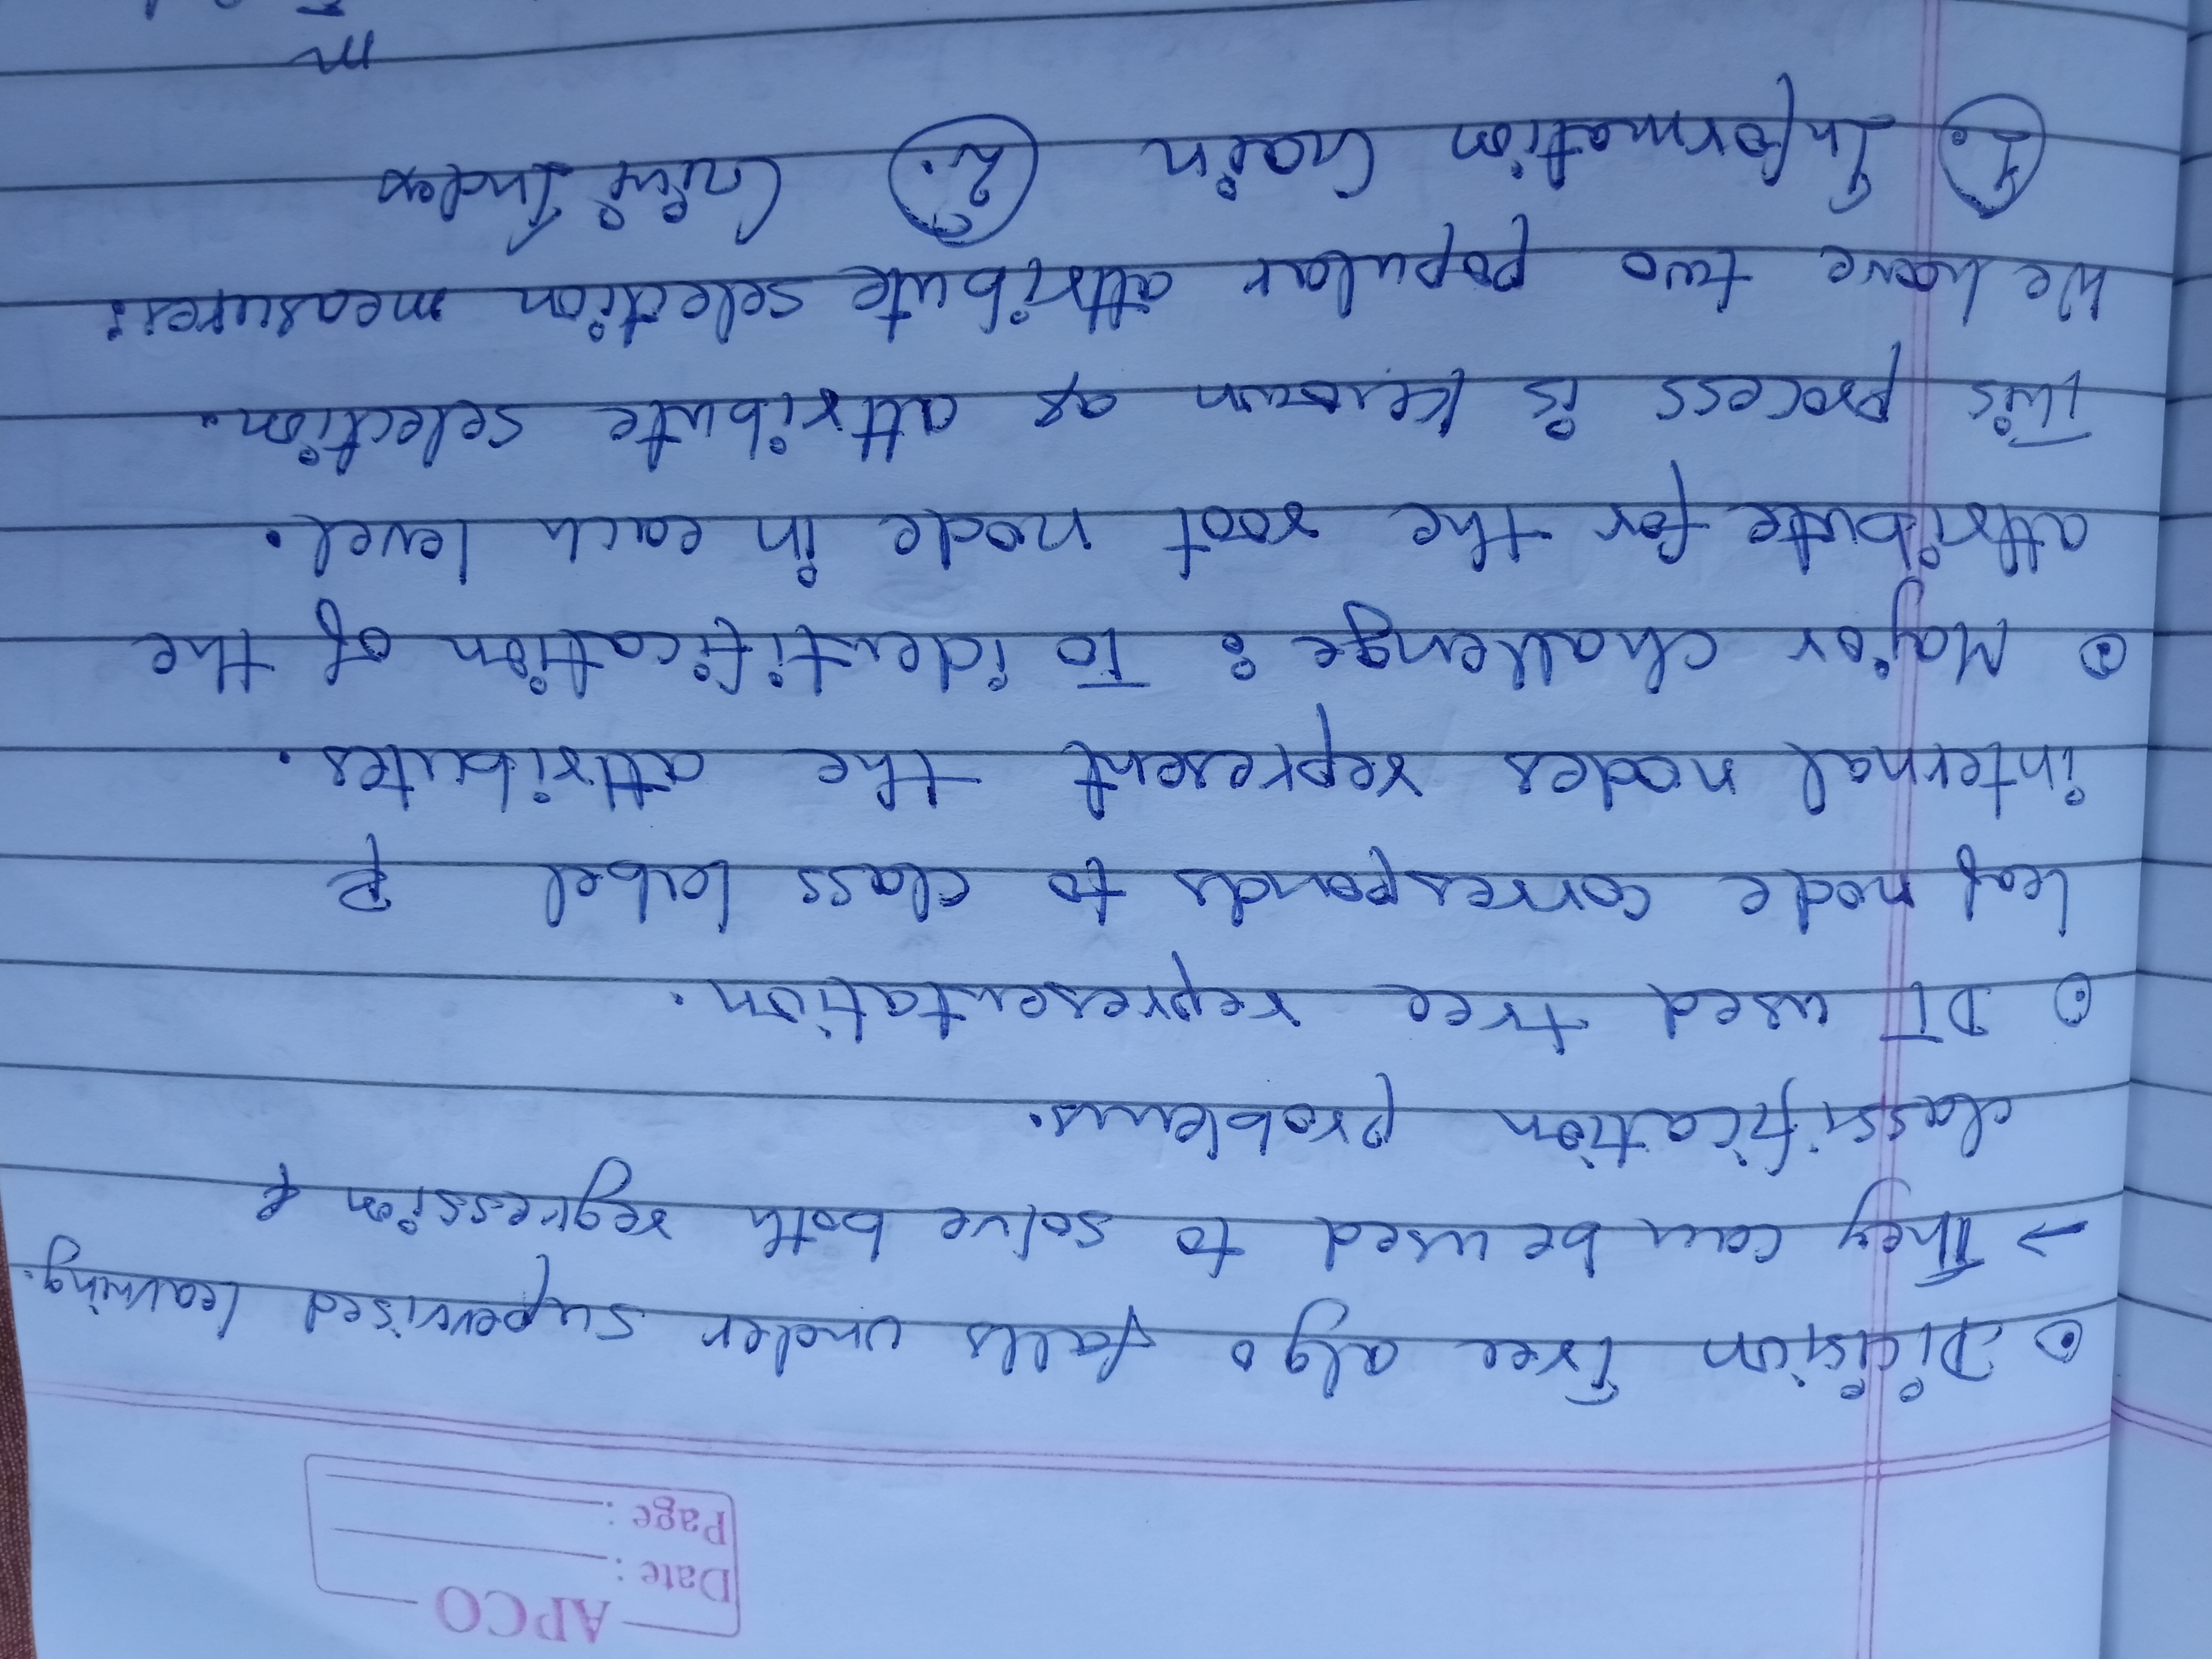 APCO
Date :
Page :
⊙ Dicision Tree algo falls under supervised learning.
→ They can be used to solve both regression &
classification problems.
⊙ DT used tree representation.
leaf node corresponds to class label &
internal nodes represent the attributes.
⊙ Major challenge : To identification of the
attribute for the root node in each level.
This process is known as attribute selection.
We have two popular attribute selection measures:
1. Information Gain 2. Gini Index
m